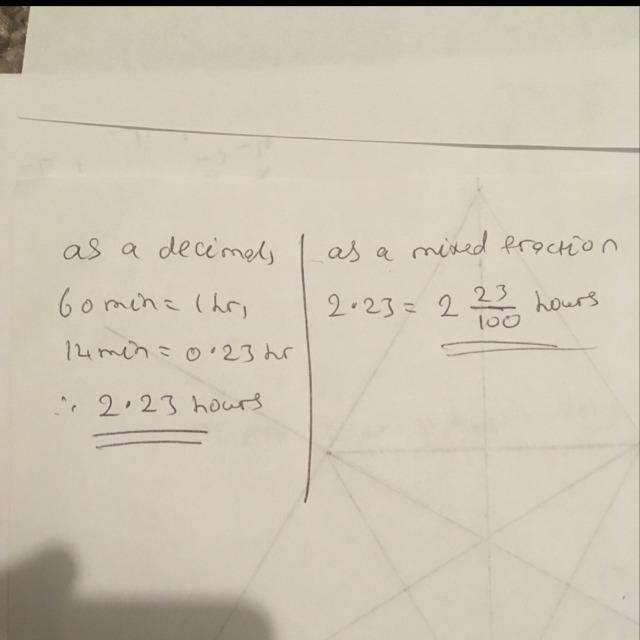 as a decimal,
60 min = 1 hr,
14 min = 0.23 hr
∴ 2.23 hours
as a mixed fraction
2.23 = 2 23/100 hours